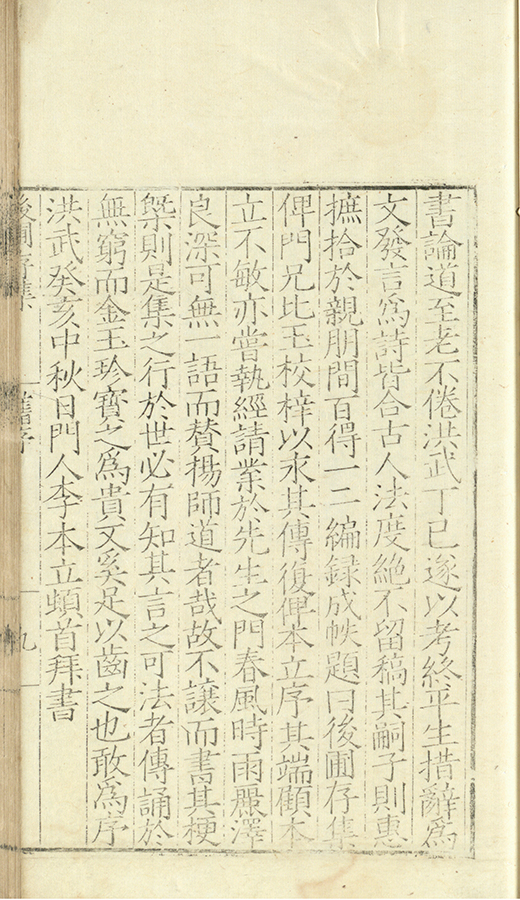 書論道至老不倦洪武丁巳遂以考終平生措辭爲
文發言爲詩皆合古人法度絶不留稿其嗣子則惠
摭拾於親朋間百得一二編録成帙題曰後圃存集
俾門兄比玉校梓以永其傳復俾本立序其端顧本
立不敏亦嘗執經請業於先生之門春風時雨嚴澤
良深可無一語而賛揚師道者哉故不讓而書其梗
槩則是集之行於世必有知其言之可法者傳誦於
無窮而金玉珍寳之爲貴又奚足以齒之也敢爲序
洪武癸亥中秋日門人李本立頓首拜書
後圃存集 舊序 九